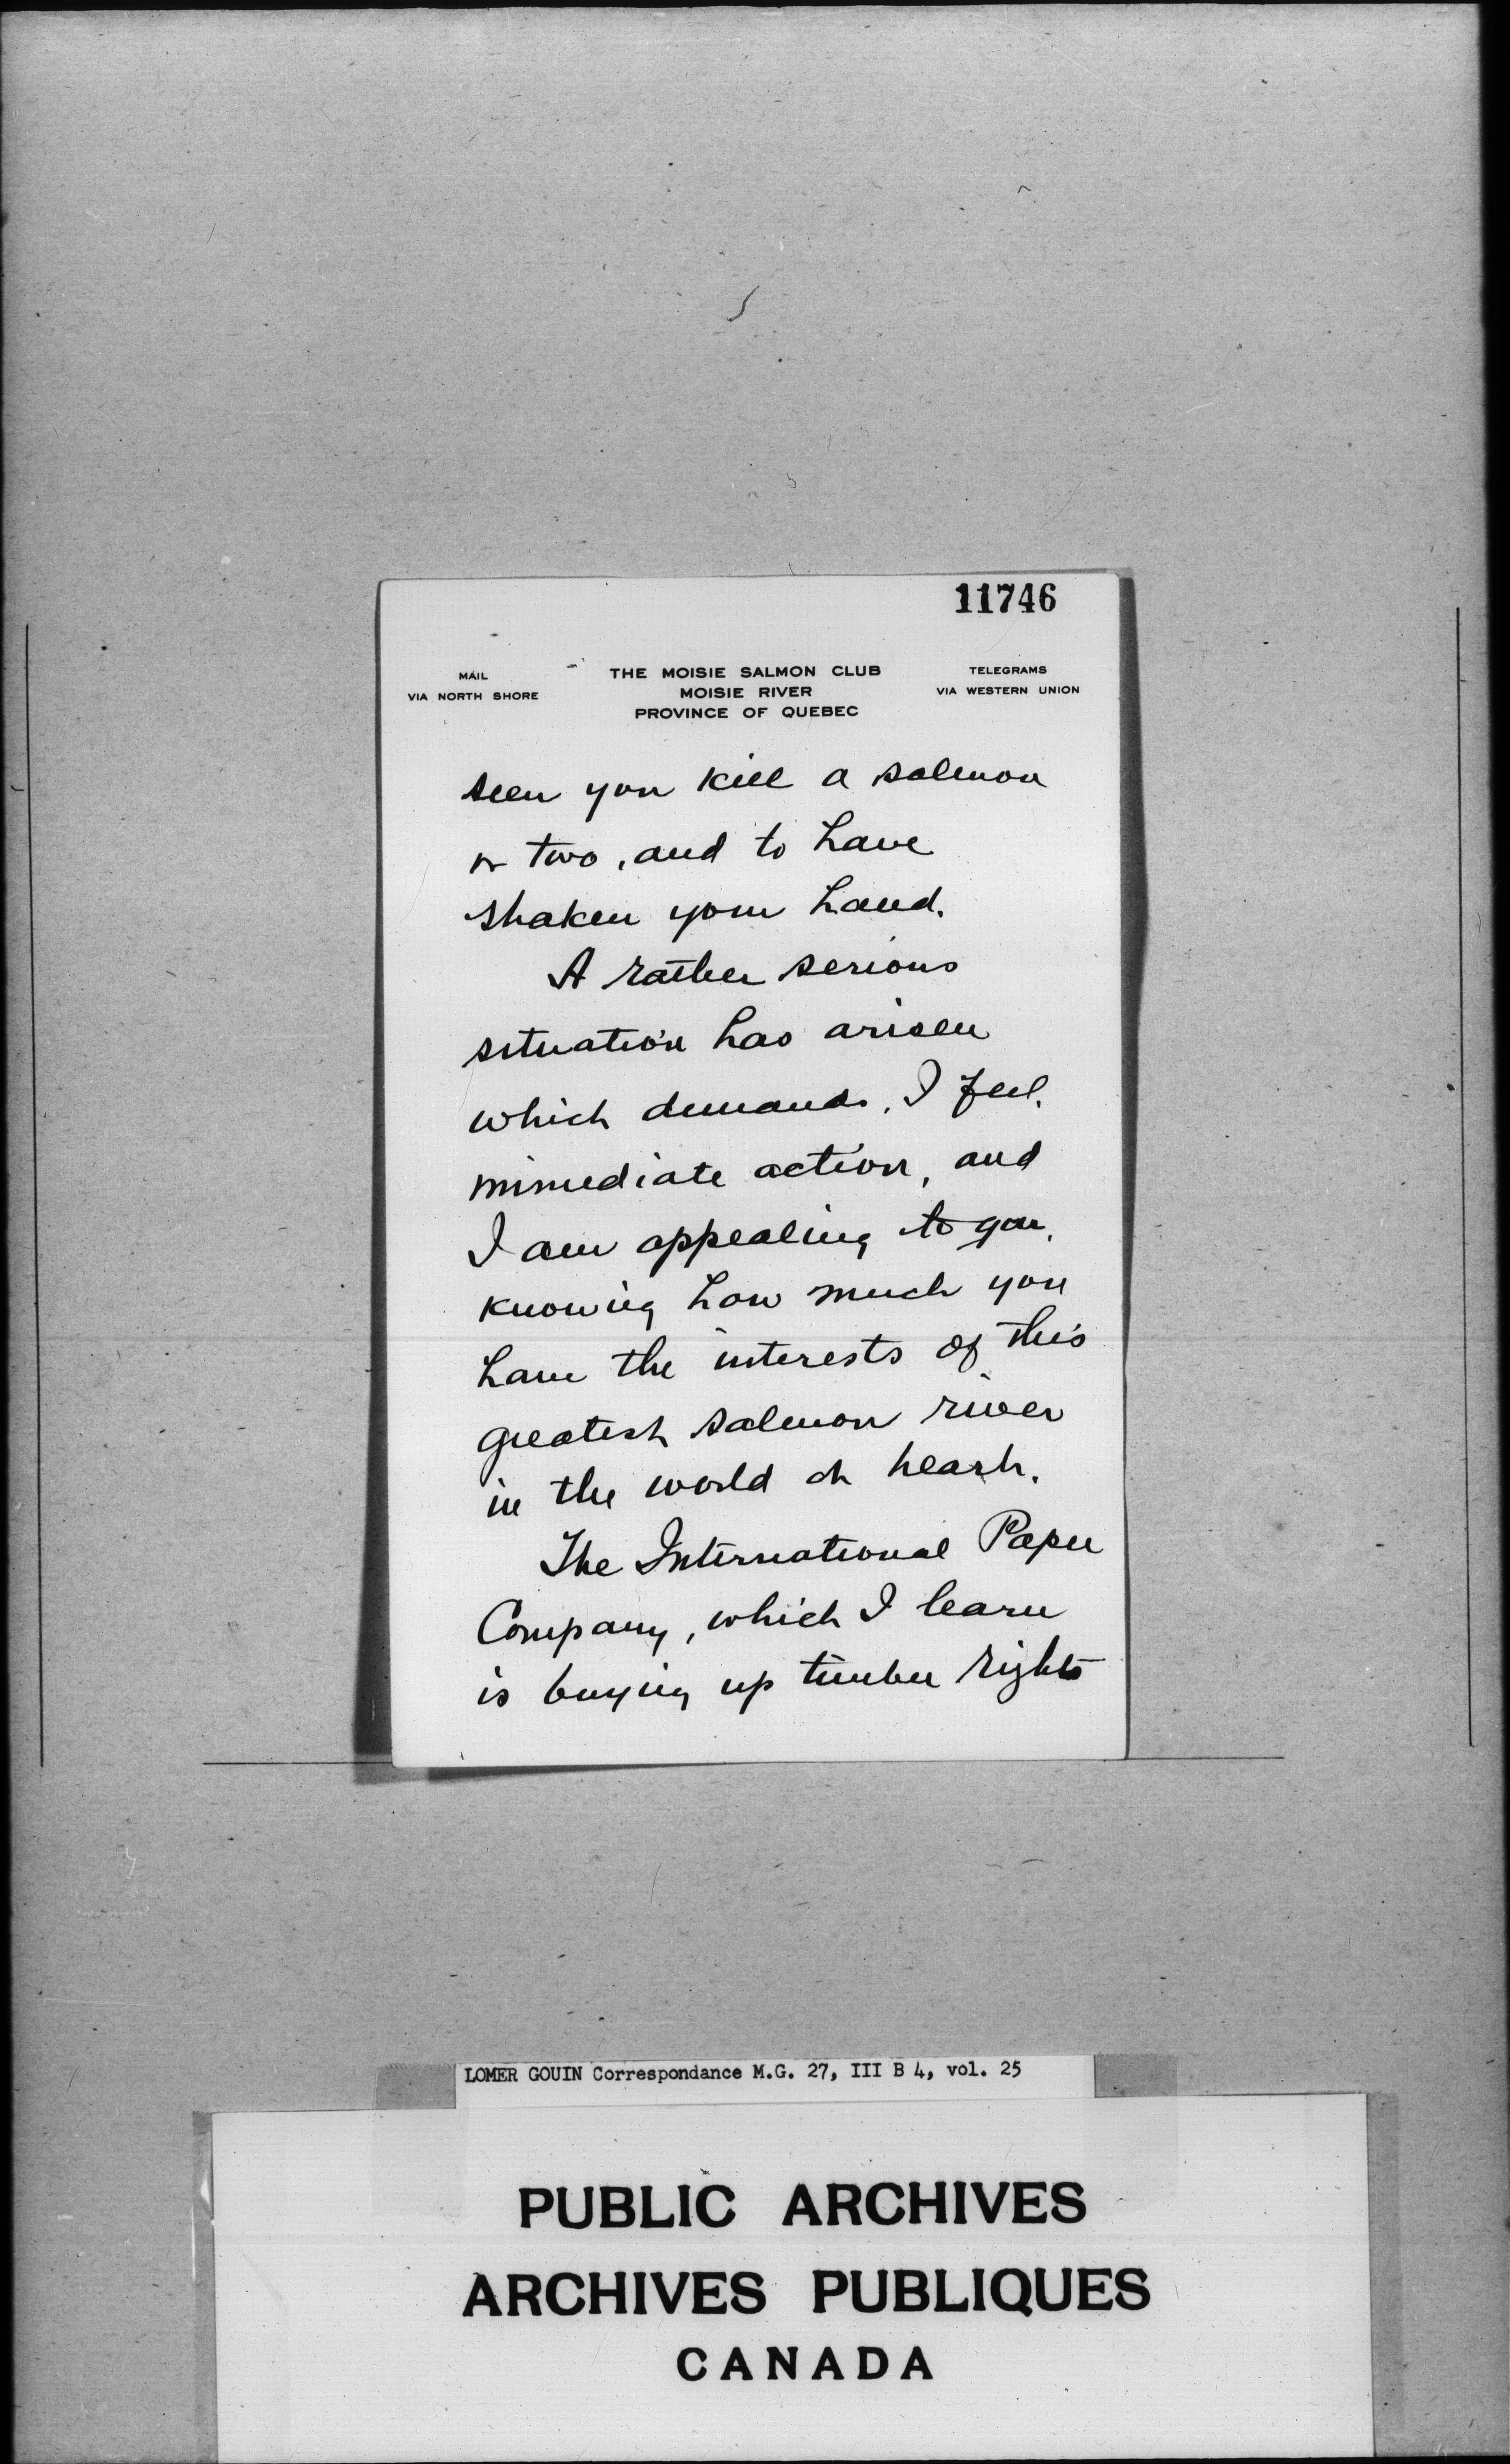 11746
MAIL
VIA NORTH SHORE
THE MOISIE SALMON CLUB
MOISIE RIVER
PROVINCE OF QUEBEC
TELEGRAMS
VIA WESTERN UNION
seen you kill a salmon
or two, and to have
shaken your hand.
A rather serious
situation has arisen
which demands, I feel,
immediate action, and
I am appealing to you,
knowing how much you
have the interests of this
greatest salmon river
in the world at heart.
The International Paper
Company, which I learn
is buying up timber rights
LOMER GOUIN Correspondance M.G. 27, III B 4, vol. 25
PUBLIC ARCHIVES
ARCHIVES PUBLIQUES
CANADA